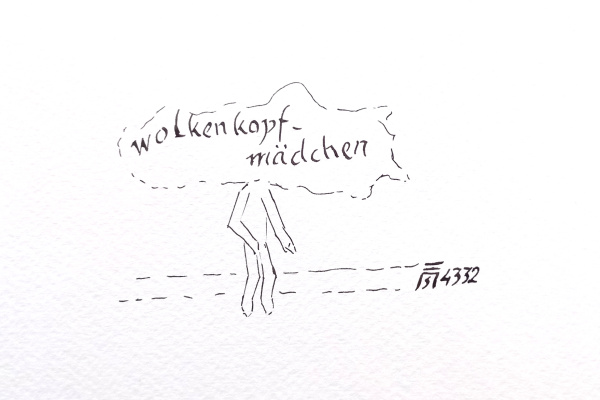 wolkenkopf-
mädchen
4332